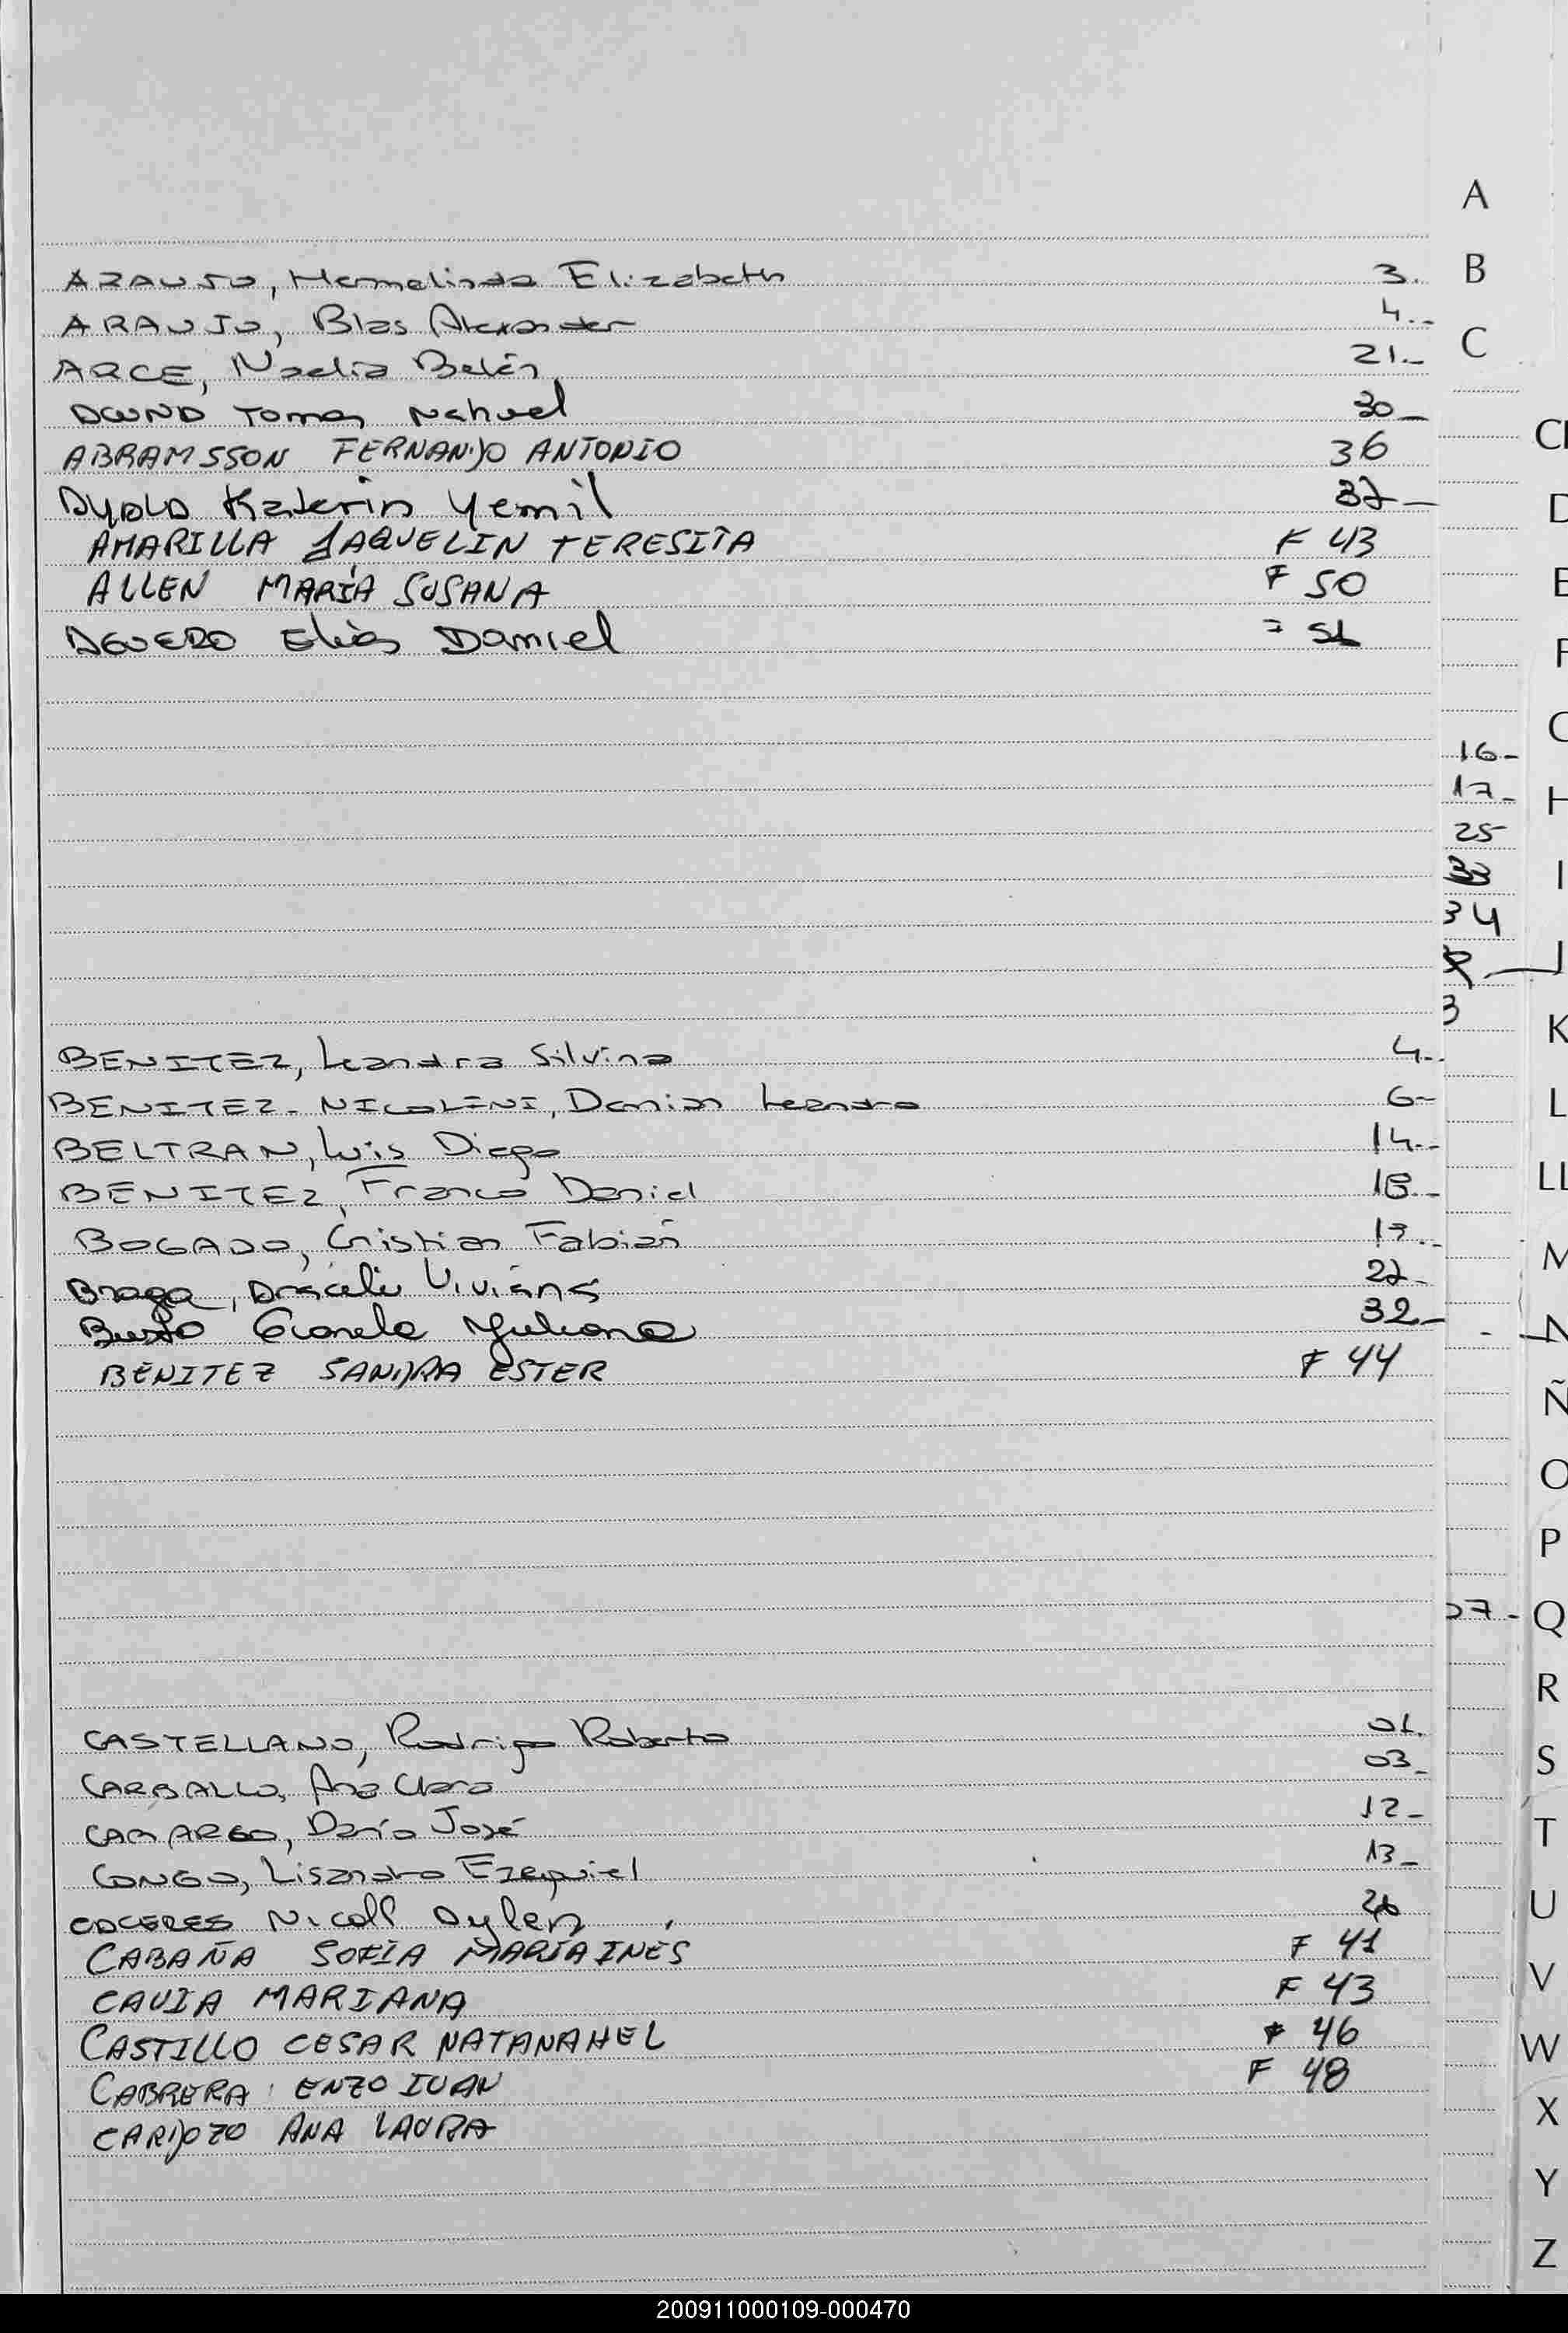 A
B
C
ARAUJO, Hermelinda Elizabeth 3.
ARAUJO, Blas Alexander 4.-
ARCE, Nadia Belén 21.-
Tomas Nahuel 30-
ABRAMSSON FERNANDO ANTONIO 36
AYALA Katerin Yemil 37-
AMARILLA JAQUELIN TERESITA F 43
ALLEN MARÍA SUSANA F 50
AGUERO Elias Daniel 51
16-
17-
25
33
34
3
BENITEZ, Leandra Silvina 4.-
BENITEZ-NICOLINI, Damian Leandro 6-
BELTRAN, Luis Diego 14.-
BENITEZ, Franco Daniel 18.-
BOGADO, Cristian Fabián 17.-
Braga, Araceli Viviana 27-
Gianela Yuliana 32-
BENITEZ SANDRA ESTER F 44
07-
CASTELLANO, Rodrigo Roberto 01.
CARBALLO, Ana Clara 03-
CAMARGO, Darío José 12-
CONGO, Lisandro Ezequiel 13-
CACERES Nicoll Aylen 26
CABAÑA SOFÍA MARÍA INÉS F 41
CAVIA MARIANA F 43
CASTILLO CESAR NATANAHEL F 46
CABRERA ENZO IVAN F 48
CARDOZO ANA LAURA
D
E
F
H
I
J
K
L
LL
M
N
Ñ
O
P
Q
R
S
T
U
V
W
X
Y
Z
200911000109-000470